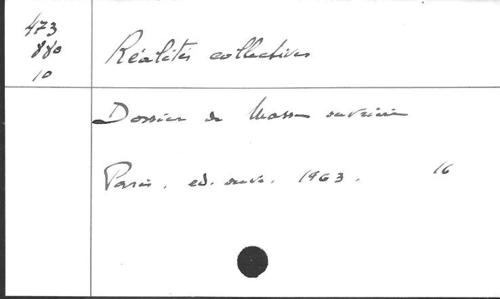 473
880
10
Réalités collectives
Dossier de Masses ouvrières
Paris. ed. ouvr. 1963. 16